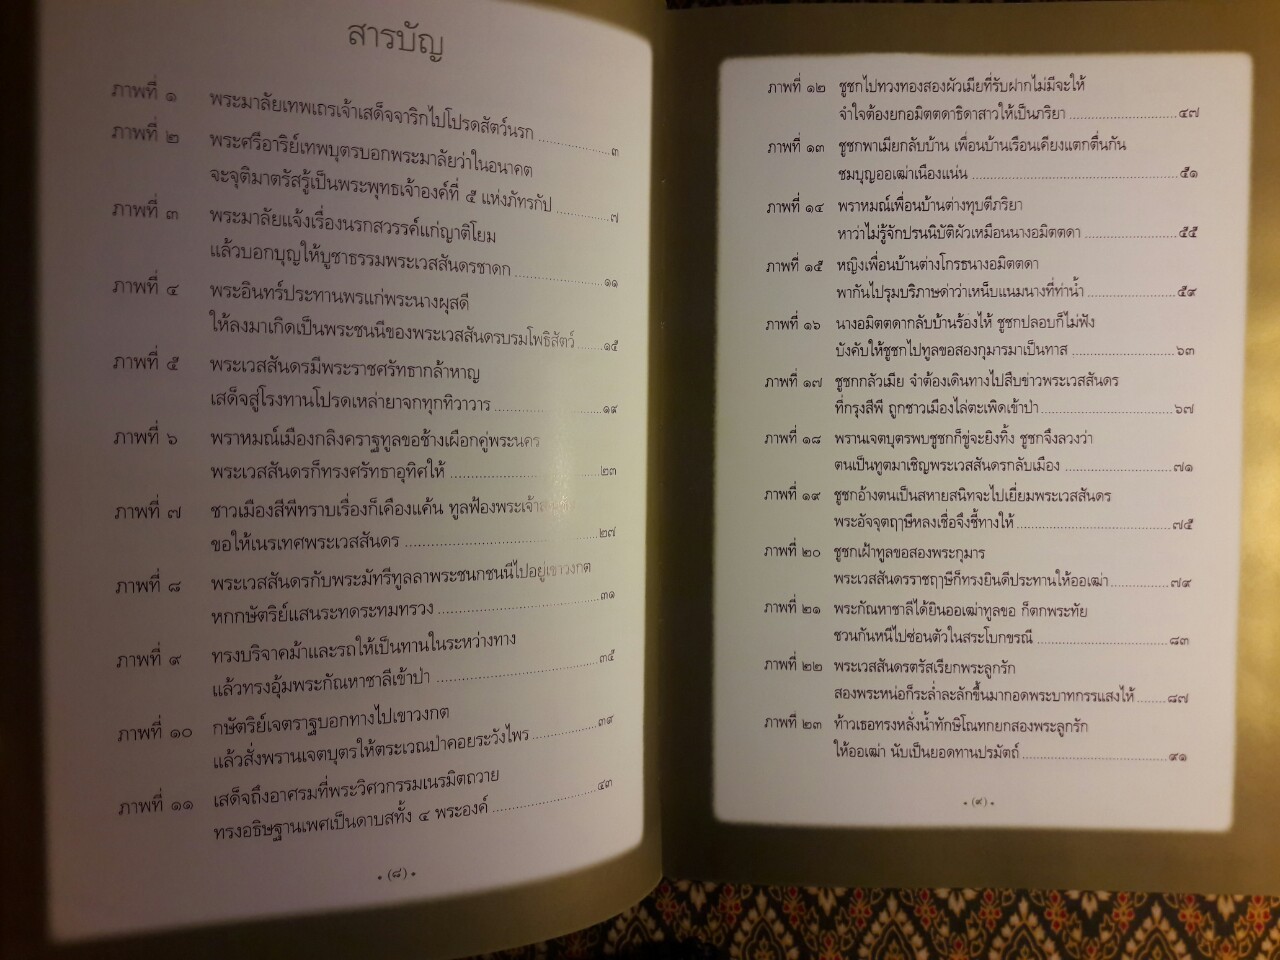 สารบัญ
ภาพที่ ๑ พระมาลัยเทพเถรเจ้าเสด็จจาริกไปโปรดสัตว์นรก ....................๓
ภาพที่ ๒ พระศรีอาริย์เทพบุตรบอกพระมาลัยว่าในอนาคต
จะจุติมาตรัสรู้เป็นพระพุทธเจ้าองค์ที่ ๕ แห่งภัทรกัป ..............๗
ภาพที่ ๓ พระมาลัยแจ้งเรื่องนรกสวรรค์แก่ญาติโยม
แล้วบอกบุญให้บูชาธรรมพระเวสสันดรชาดก ........................๑๑
ภาพที่ ๔ พระอินทร์ประทานพรแก่พระนางผุสดี
ให้ลงมาเกิดเป็นพระชนนีของพระเวสสันดรบรมโพธิสัตว์ .......๑๕
ภาพที่ ๕ พระเวสสันดรมีพระราชศรัทธากล้าหาญ
เสด็จสู่โรงทานโปรดเหล่ายาจกทุกทิวาวาร ...........................๑๙
ภาพที่ ๖ พราหมณ์เมืองกลิงคราฐทูลขอช้างเผือกคู่พระนคร
พระเวสสันดรก็ทรงศรัทธาอุทิศให้ ......................................๒๓
ภาพที่ ๗ ชาวเมืองสีพีทราบเรื่องก็เคืองแค้น ทูลฟ้องพระเจ้า
ขอให้เนรเทศพระเวสสันดร ................................................๒๗
ภาพที่ ๘ พระเวสสันดรกับพระมัทรีทูลลาพระชนกชนนีไปอยู่เขาวงกต
หกกษัตริย์แสนระทดระทมทรวง .........................................๓๑
ภาพที่ ๙ ทรงบริจาคม้าและรถให้เป็นทานในระหว่างทาง
แล้วทรงอุ้มพระกัณหาชาลีเข้าป่า ........................................๓๕
ภาพที่ ๑๐ กษัตริย์เจตราฐบอกทางไปเขาวงกต
แล้วสั่งพรานเจตบุตรให้ตระเวณป่าคอยระวังไพร ....................๓๙
ภาพที่ ๑๑ เสด็จถึงอาศรมที่พระวิศวกรรมเนรมิตถวาย
ทรงอธิษฐานเพศเป็นดาบสทั้ง ๔ พระองค์ ............................๔๓
• (๘) •
ภาพที่ ๑๒ ชูชกไปทวงทองสองผัวเมียที่รับฝากไม่มีจะให้
จำใจต้องยกอมิตตดาธิดาสาวให้เป็นภริยา .............................๔๗
ภาพที่ ๑๓ ชูชกพาเมียกลับบ้าน เพื่อนบ้านเรือนเคียงแตกตื่นกัน
ชมบุญออเฒ่าเนืองแน่น .....................................................๕๑
ภาพที่ ๑๔ พราหมณ์เพื่อนบ้านต่างทุบตีภริยา
หาว่าไม่รู้จักปรนนิบัติผัวเหมือนนางอมิตตดา ..........................๕๕
ภาพที่ ๑๕ หญิงเพื่อนบ้านต่างโกรธนางอมิตตดา
พากันไปรุมบริภาษด่าว่าเหน็บแนมนางที่ท่าน้ำ .......................๕๙
ภาพที่ ๑๖ นางอมิตตดากลับบ้านร้องไห้ ชูชกปลอบก็ไม่ฟัง
บังคับให้ชูชกไปทูลขอสองกุมารมาเป็นทาส ...........................๖๓
ภาพที่ ๑๗ ชูชกกลัวเมีย จำต้องเดินทางไปสืบข่าวพระเวสสันดร
ที่กรุงสีพี ถูกชาวเมืองไล่ตะเพิดเข้าป่า ..................................๖๗
ภาพที่ ๑๘ พรานเจตบุตรพบชูชกก็ขู่จะยิงทิ้ง ชูชกจึงลวงว่า
ตนเป็นทูตมาเชิญพระเวสสันดรกลับเมือง .............................๗๑
ภาพที่ ๑๙ ชูชกอ้างตนเป็นสหายสนิทจะไปเยี่ยมพระเวสสันดร
พระอัจจุตฤๅษีหลงเชื่อจึงชี้ทางให้ ........................................๗๕
ภาพที่ ๒๐ ชูชกเฝ้าทูลขอสองพระกุมาร
พระเวสสันดรราชฤๅษีก็ทรงยินดีประทานให้ออเฒ่า ................๗๙
ภาพที่ ๒๑ พระกัณหาชาลีได้ยินออเฒ่าทูลขอ ก็ตกพระทัย
ชวนกันหนีไปซ่อนตัวในสระโบกขรณี ...................................๘๓
ภาพที่ ๒๒ พระเวสสันดรตรัสเรียกพระลูกรัก
สองพระหน่อก็ระล่ำละลักขึ้นมากอดพระบาทกรรแสงไห้ ........๘๗
ภาพที่ ๒๓ ท้าวเธอทรงหลั่งน้ำทักษิโณทกยกสองพระลูกรัก
ให้ออเฒ่า นับเป็นยอดทานปรมัตถ์ ......................................๙๑
• (๙) •